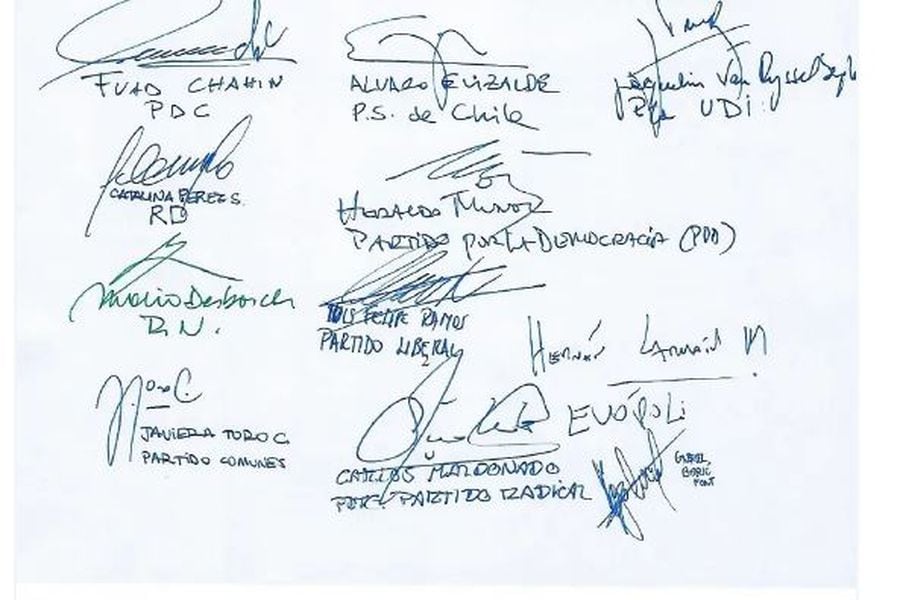 FUAD CHAHIN
PDC
ALVARO ELIZALDE
P.S. de Chile
Jacquelin Van Rysselberghe
Pta UDI
CATALINA PEREZ S.
RD
HERALDO MUÑOZ
PARTIDO POR LA DEMOCRACIA (PPD)
Mario Desbordes
R.N.
LUIS FELIPE RAMOS
PARTIDO LIBERAL
HERNÁN LARRAIN M.
EVÓPOLI
JAVIERA TORO C.
PARTIDO COMUNES
CARLOS MALDONADO
PARTIDO RADICAL
GABRIEL
BORIC
FONT